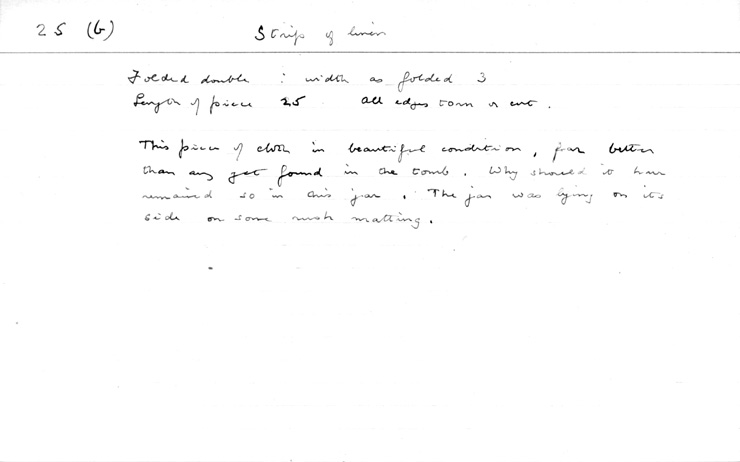 25 (b) Strip of linen
Folded double : width as folded 3
Length of piece 25 All edges torn or cut.
This piece of cloth in beautiful condition, far better
than any yet found in the tomb. Why should it have
remained so in this jar. The jar was lying on its
side on some rush matting.